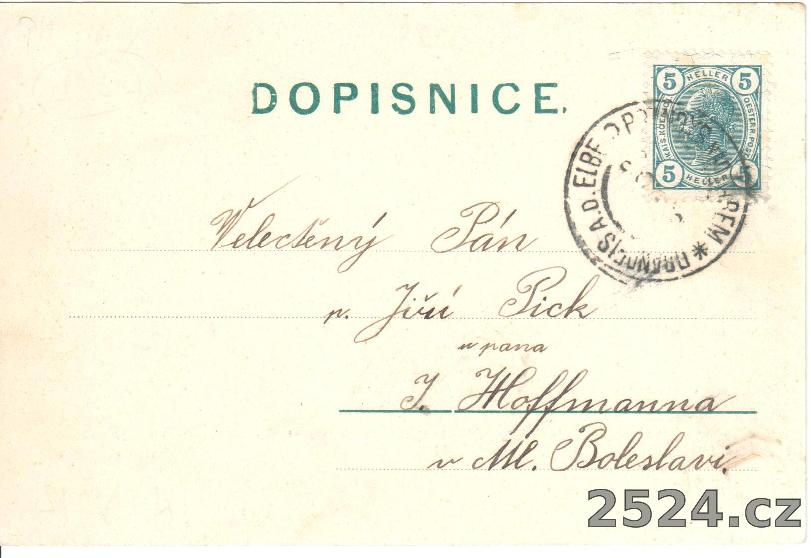 DOPISNICE.
5 HELLER 5
KAIS. KOEN. OESTERR. POST
5 HELLER 5
BRANDEIS A.D. ELBE
Velectěný Pán
p. Jiří Pick
u pana
J. Hoffmanna
v Ml. Boleslavi.
2524.cz